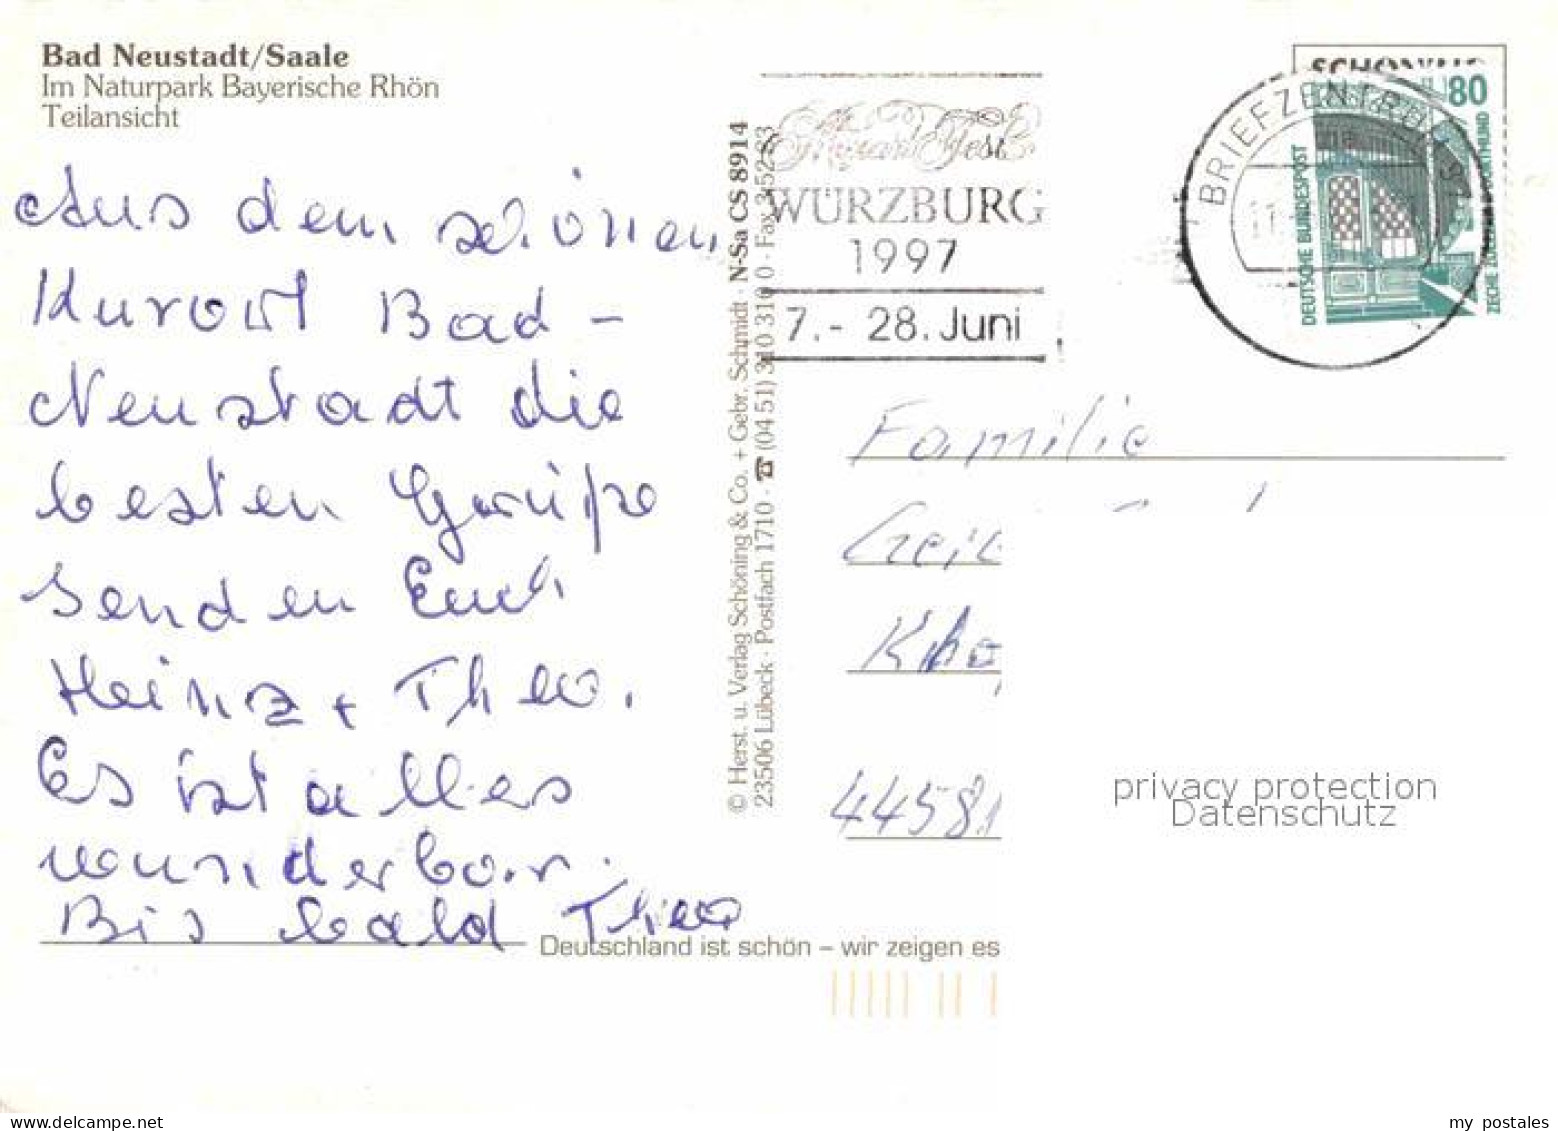 Bad Neustadt/Saale
Im Naturpark Bayerische Rhön
Teilansicht
Aus dem schönen
Kurort Bad-
Neustadt die
besten Grüße
senden Euch
Heinz + Theo.
Es ist alles
wunderbar.
Bis bald Theo
Deutschland ist schön – wir zeigen es
© Herst. u. Verlag Schöning & Co. + Gebr. Schmidt · N-Sa CS 8914
23506 Lübeck · Postfach 1710 · ☎ (04 51) 310 310 · Fax
Mozart Fest
WÜRZBURG
1997
7.- 28. Juni
BRIEFZENTRUM 97
80
DEUTSCHE BUNDESPOST
Familie
44581
privacy protection
Datenschutz
my postales